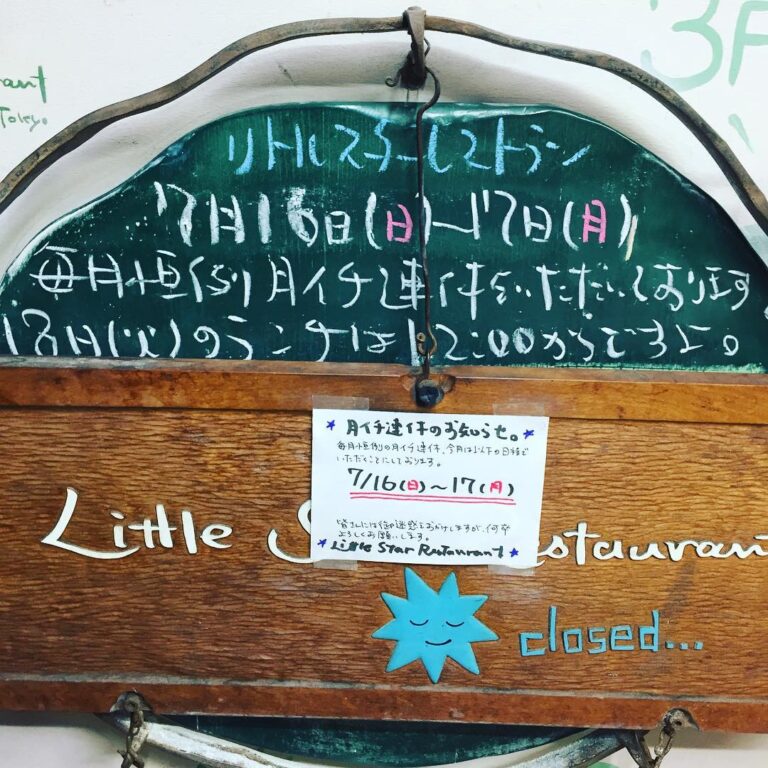 リトルスターレストラン
7月16日(日)〜17日(月)
毎月恒例月イチ連休をいただいております。
18日(火)のランチは12:00からですよ。
月イチ連休のお知らせ。
毎月恒例の月イチ連休、今月は以下の日程で
いただくことにしております。
7/16(日)〜17(月)
皆さんには御迷惑をおかけしますが、何卒
よろしくお願いします。
Little Star Restaurant
Little S estaurant
closed...
3F
rant
Tokyo